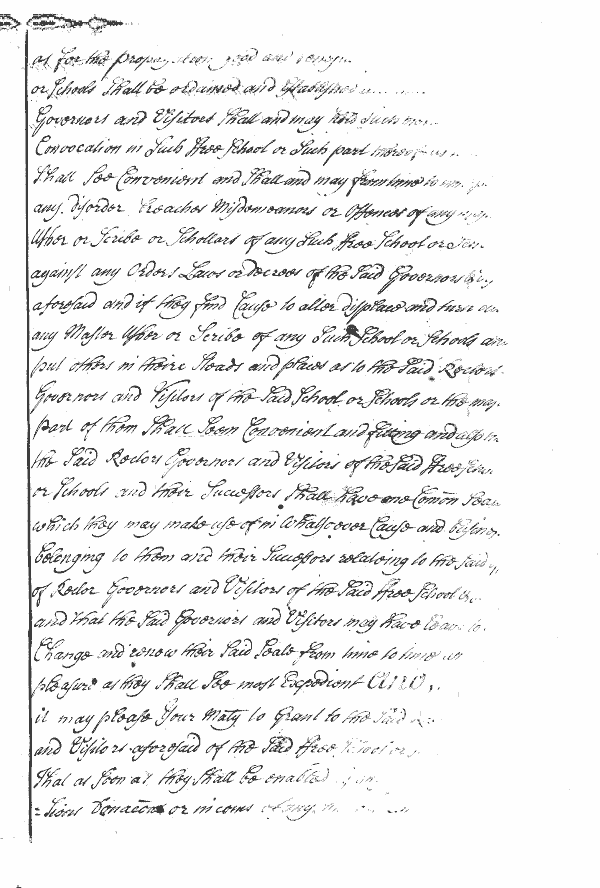 as for the propagation good and
or Schools Shall be ordained and Established
Governors and Visitors Shall and may hold Such
Convocation in Such ffree School or Such part thereof as
Shall See Convenient and Shall and may from time to
any disorder Breaches Misdemeanors or Offences of any
Usher or Scribe or Schollars of any Such ffree School or
against any Orders Laws or decrees of the Said Governors
aforesaid and if they find Cause to alter displace and turn
any Master Usher or Scribe of any Such School or Schools
put others in theire Steads and places as to the Said Rectors
Governors and Visitors of the Said School or Schools or the
part of them Shall Seem Convenient and fitting and also
the Said Rectors Governors and Visitors of the Said ffree
or Schools and their Successors Shall have one Comon Seale
which they may make use of in Whatsoever Cause and
belonging to them and their Successors relateing to the Said
of Rector Governors and Visitors of the Said ffree School
and that the Said Governors and Visitors may have leave to
Change and renew their Said Seale from time to time at
pleasure as they Shall See most Expedient And
it may please Your Maty to Grant to the Said
and Visitors aforesaid of the Said ffree School or
That as Soon as they Shall be enabled
Donacons or incoms of any